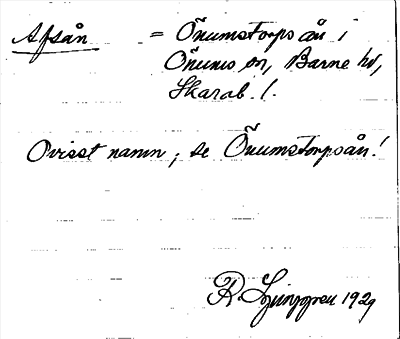 Afsån = Önumstorpsån i
Önums sn, Barne hd,
Skarab. l.
Ovisst namn; se Önumstorpsån!
R Ljunggren 1929